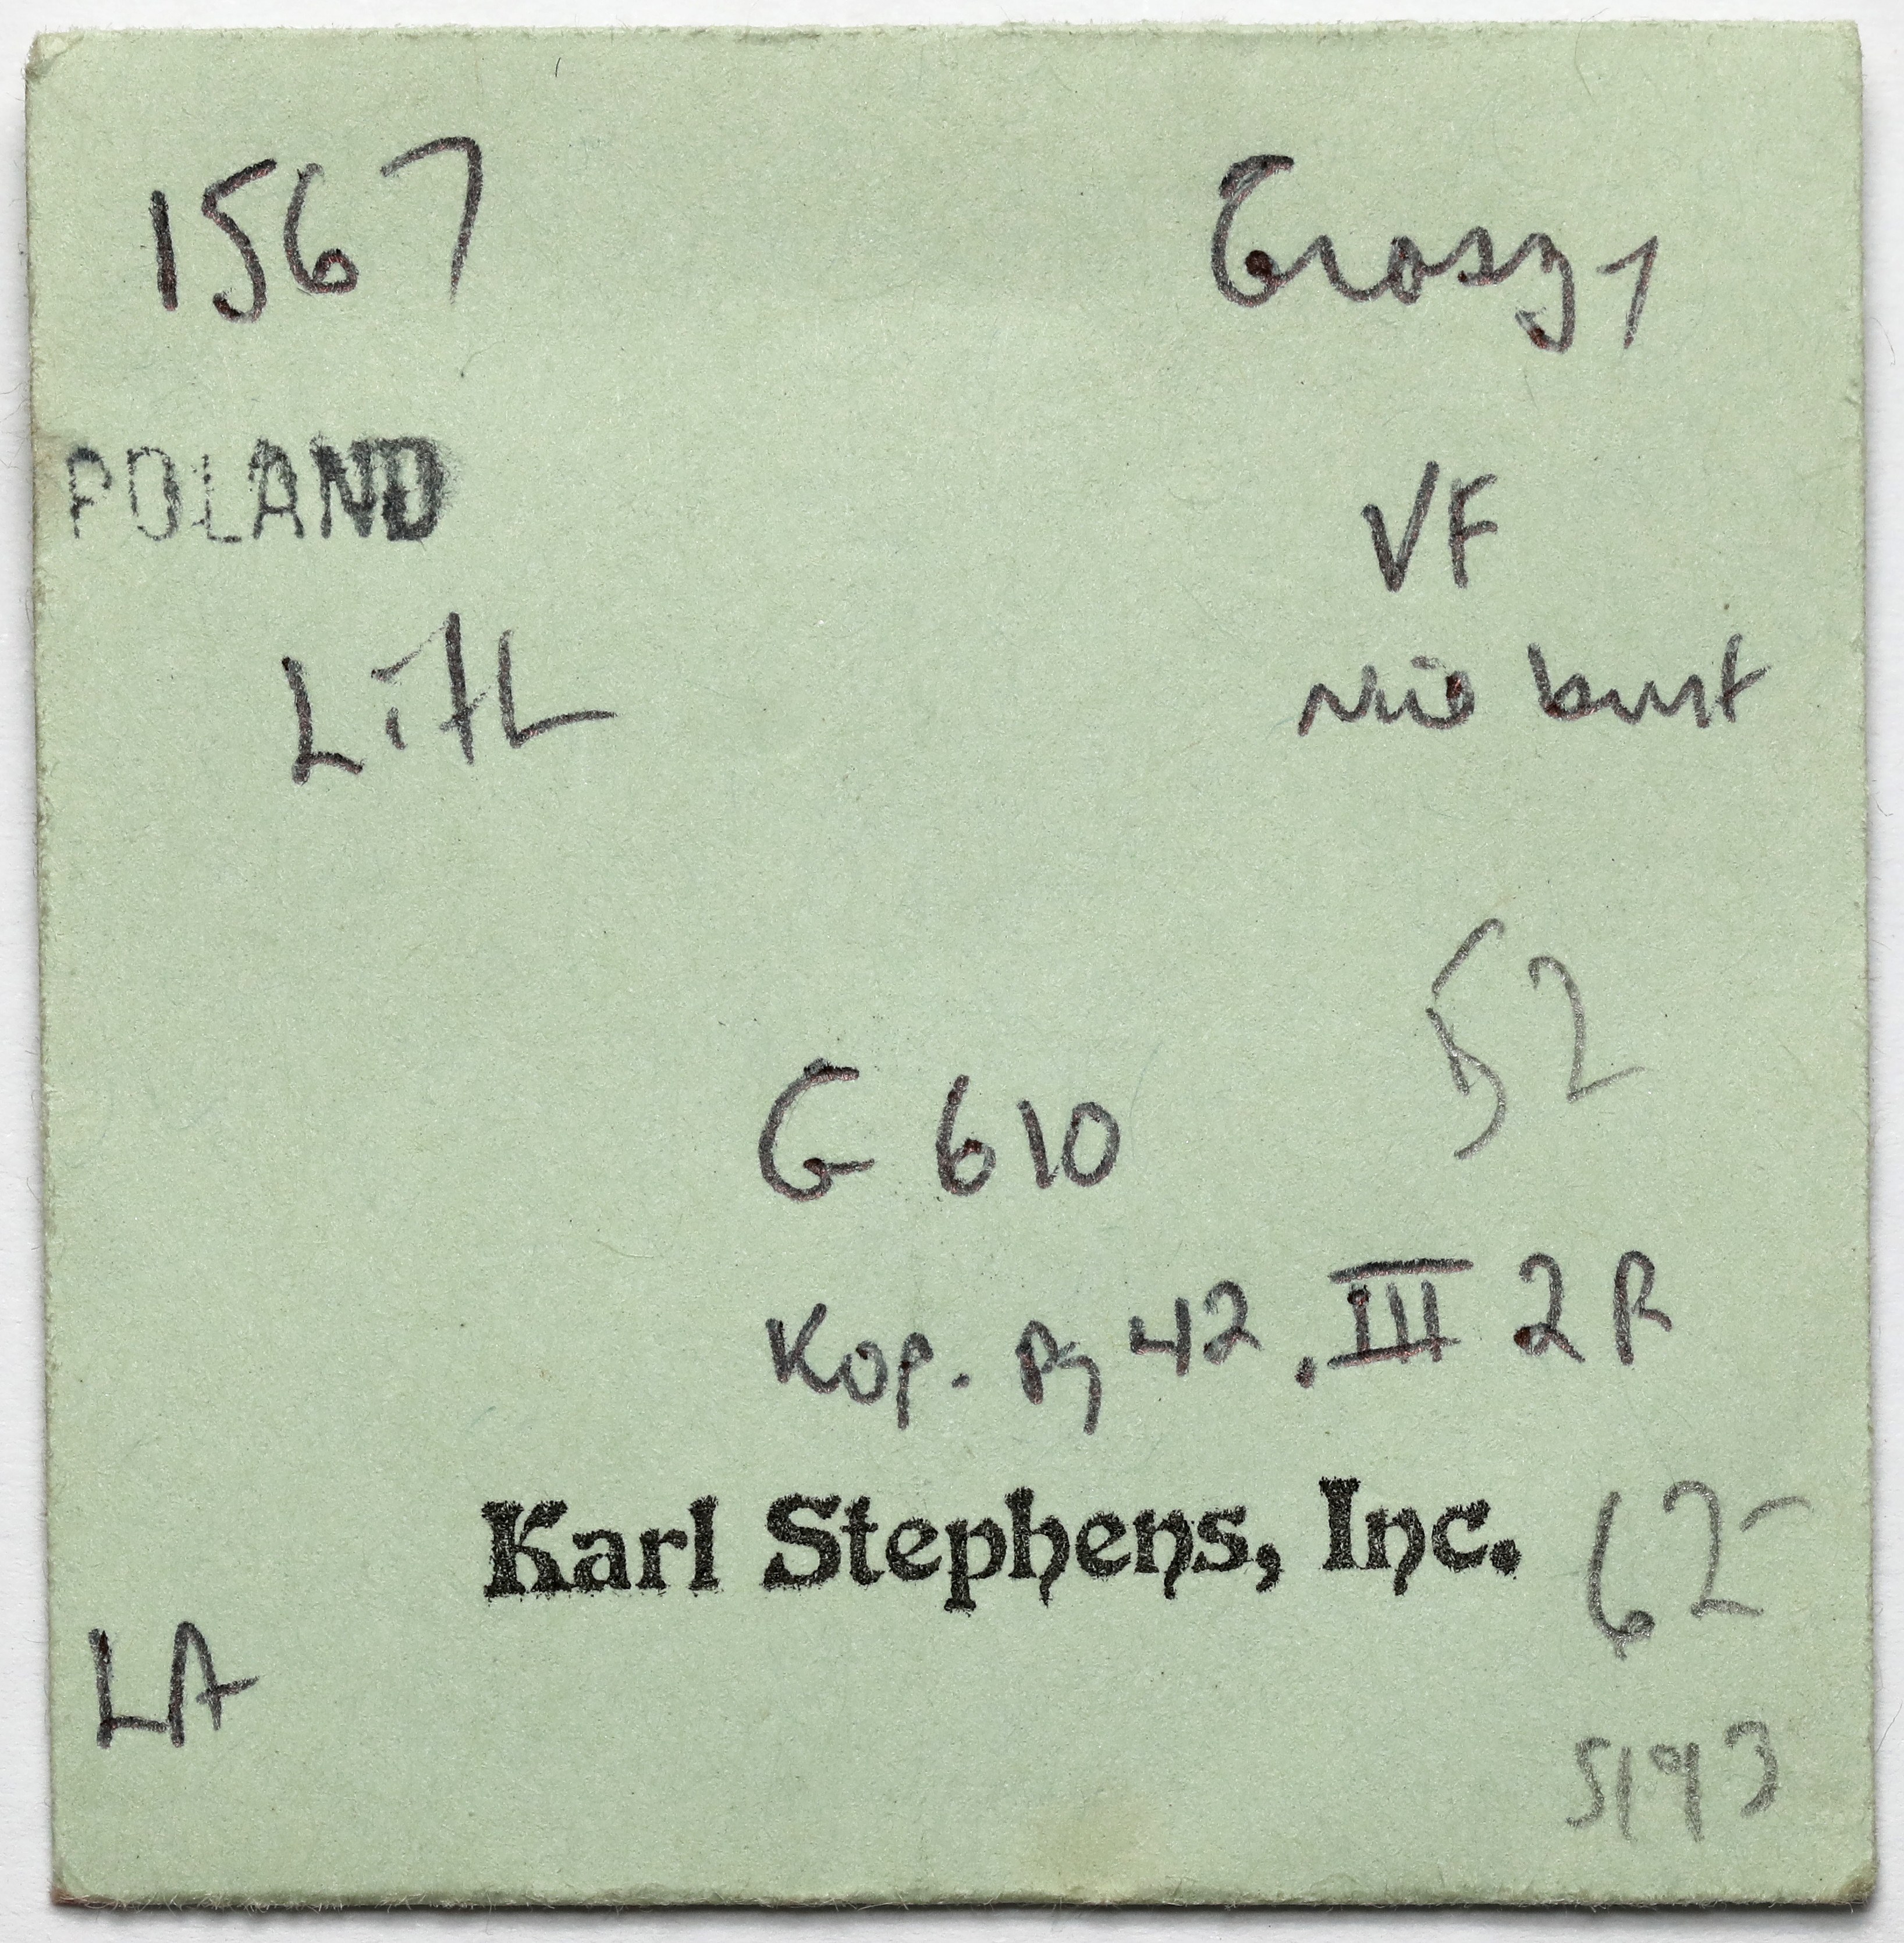 1567 Groszy
POLAND
VF
Lith
nice bust
52
G 610
Kop. Pg 42. III 2 R
Karl Stephens, Inc. 62-
LA
5193